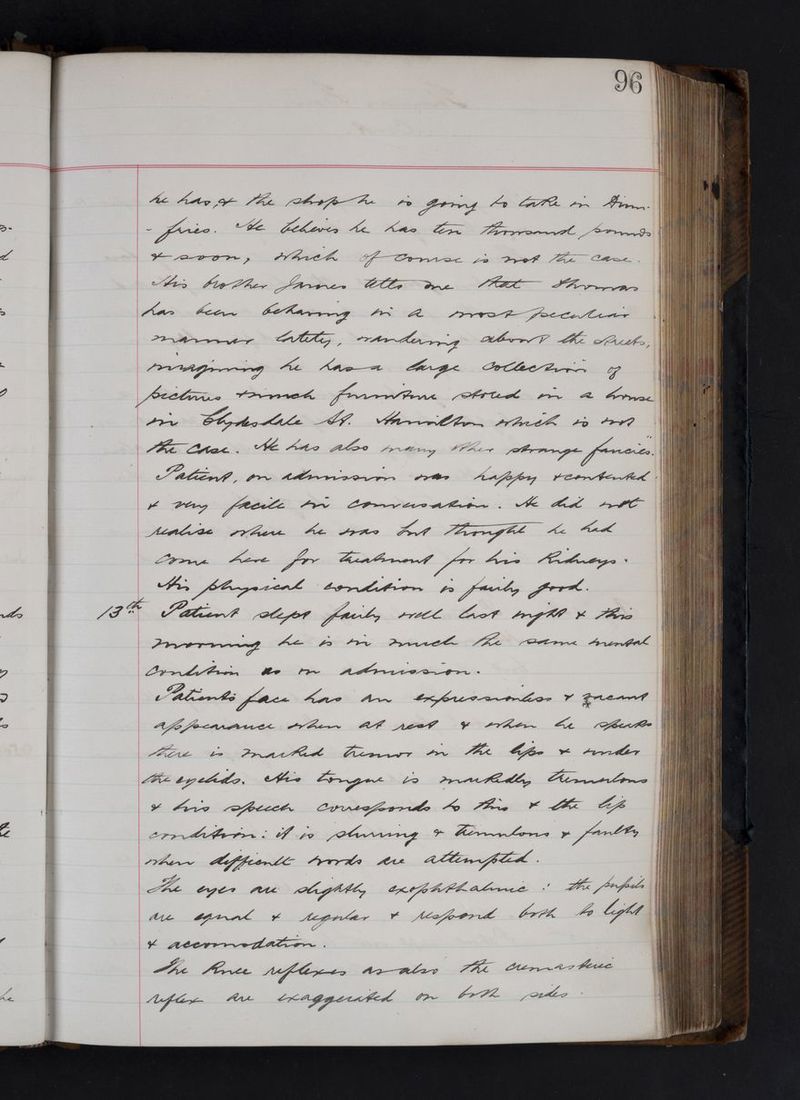 96
he has, & the shop he is going to take in Dum-
- fries. He believes he has ten thousand pounds
& soon, which of course is not the case.
His brother James tells me that Thomas
has been behaving in a most peculiar
manner lately, wandering about the streets,
imagining he has a large collection of
pictures & much furniture stored in a house
in Clydesdale St. Hamilton which is not
the case. He has also many other strange fancies."
Patient, on admission was happy & contented
& very facile in conversation. He did not
realise where he was but thought he had
come here for treatment for his Kidneys.
His physical condition is fairly good.
13th Patient slept fairly well last night & this
morning he is in much the same mental
condition as on admission.
Patient's face has an expressionless & vacant
appearance when at rest & when he speaks
there is marked tremor in the lips & under
the eyelids. His tongue is markedly tremulous
& his speech corresponds to this & the lip
condition: it is slurring & tremulous & faulty
when difficult words are attempted.
The eyes are slightly exophthalmic: the pupils
are equal & regular & respond both to light
& accomodation.
The Knee reflexes as also the cremasteric
reflex are exaggerated on both sides.